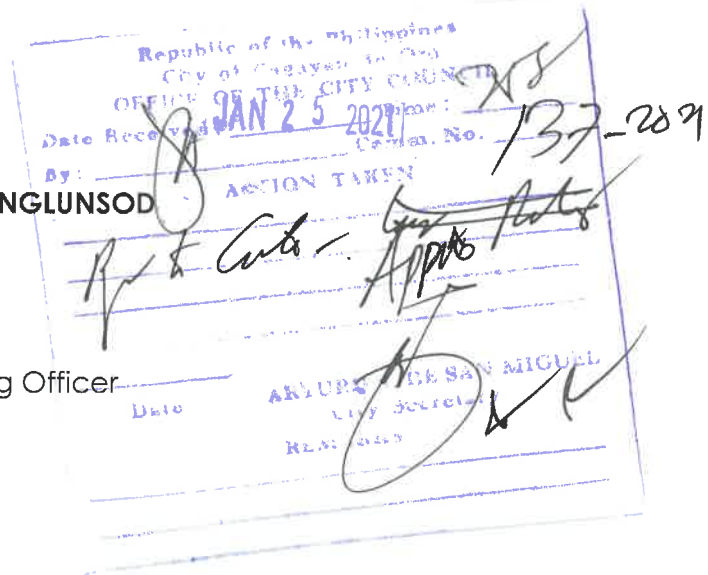 Republic of the Philippines
City of Cagayan de Oro
OFFICE OF THE CITY COUNCIL
Date Received JAN 25 2021 Time:
Comm. No. 137-2021
By:
ACTION TAKEN
NGLUNSOD
g Officer
ARTURO DE SAN MIGUEL
Date City Secretary
REMARKS